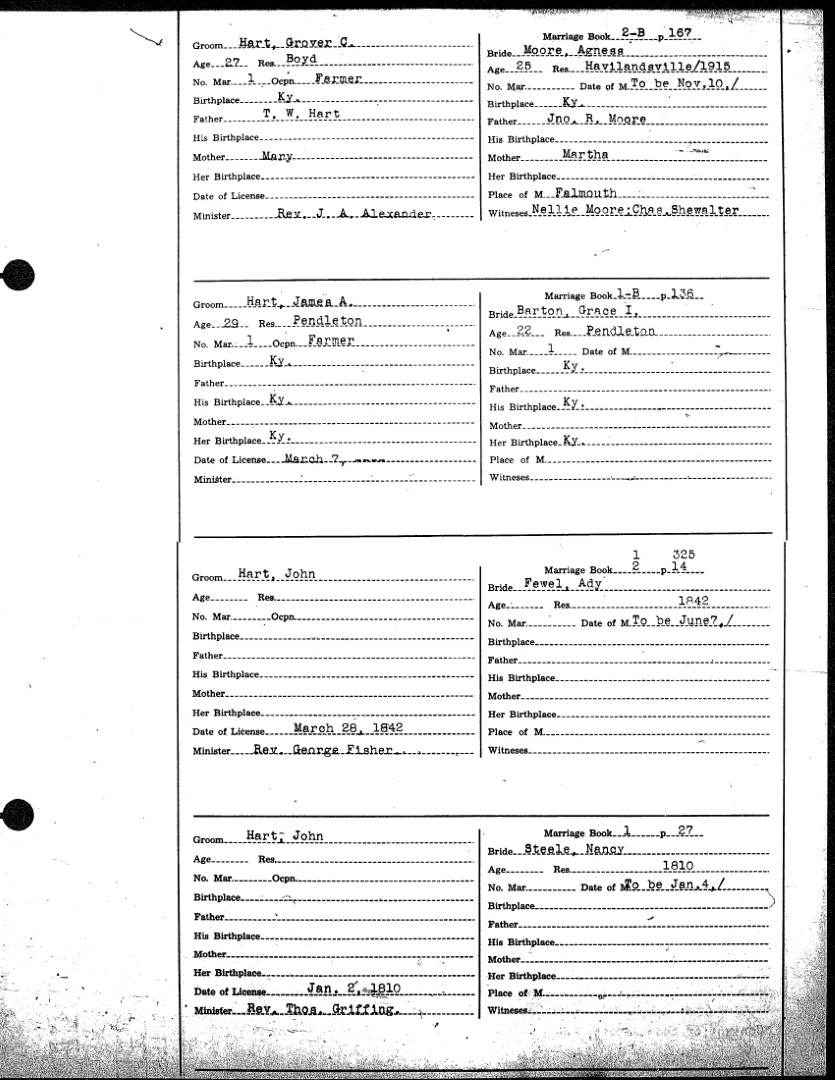 Groom Hart, Grover C.
Age 27 Res. Boyd
No. Mar. 1 Ocpn. Farmer
Birthplace Ky.
Father T. W. Hart
His Birthplace
Mother Mary
Her Birthplace
Date of License
Minister Rev. J. A. Alexander
Marriage Book 2-B p. 167
Bride Moore, Agness
Age 25 Res. Havilandsville/1915
No. Mar. Date of M. To be Nov. 10, /
Birthplace Ky.
Father Jno. R. Moore
His Birthplace
Mother Martha
Her Birthplace
Place of M. Falmouth
Witneses Nellie Moore:Chas. Shewalter
Groom Hart, James A.
Age 29 Res. Pendleton
No. Mar. 1 Ocpn. Farmer
Birthplace Ky.
Father
His Birthplace Ky.
Mother
Her Birthplace Ky.
Date of License March 7,
Minister
Marriage Book 1-B p. 136
Bride Barton, Grace I.
Age 22 Res. Pendleton
No. Mar. 1 Date of M.
Birthplace Ky.
Father
His Birthplace Ky.
Mother
Her Birthplace Ky.
Place of M.
Witneses
Groom Hart, John
Age Res.
No. Mar. Ocpn.
Birthplace
Father
His Birthplace
Mother
Her Birthplace
Date of License March 28, 1842
Minister Rev. George Fisher
1 325
Marriage Book 2 p. 14
Bride Fewel, Ady
Age Res. 1842
No. Mar. Date of M. To be June 7, /
Birthplace
Father
His Birthplace
Mother
Her Birthplace
Place of M.
Witneses
Groom Hart, John
Age Res.
No. Mar. Ocpn.
Birthplace
Father
His Birthplace
Mother
Her Birthplace
Date of License Jan. 2, 1810
Minister Rev. Thos. Griffing.
Marriage Book 1 p. 27
Bride Steele, Nancy
Age Res. 1810
No. Mar. Date of M. To be Jan. 4, /
Birthplace
Father
His Birthplace
Mother
Her Birthplace
Place of M.
Witneses